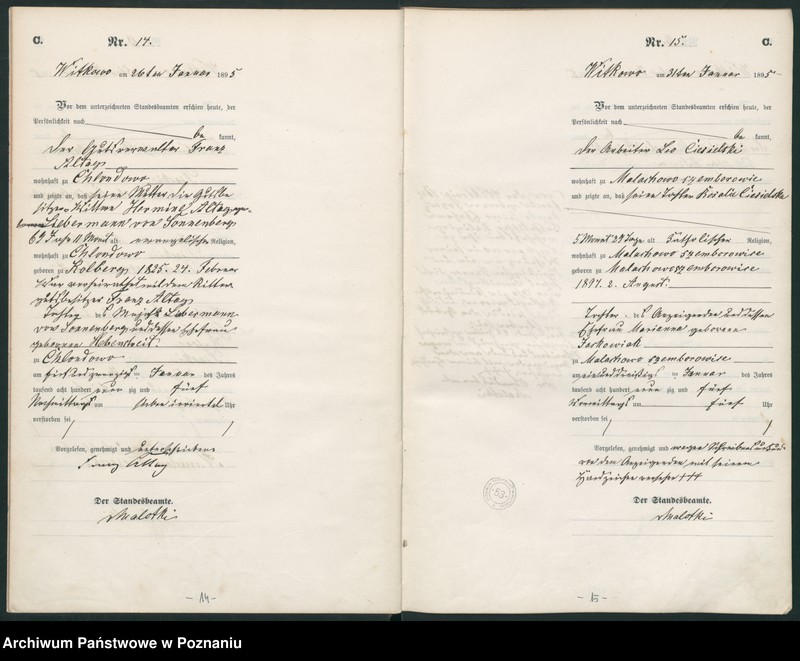 C.
Nr. 14.
Witkowo am 26ten Januar 1895
Vor dem unterzeichneten Standesbeamten erschien heute, der
Persönlichkeit nach
be kannt,
der Gutsverwalter Franz
Altag
wohnhaft zu Chlondowo
und zeigte an, daß seine Mutter die Gutsbe
sitzer-Wittwe Hermine Altag ge-
borene Liebermann von Sonnenberg
69 Jahre 11 Monat alt evangelischer Religion,
wohnhaft zu Chlondowo
geboren zu Kolberg 1825. 24. Februar
war verheirathet mit dem Ritter
gutsbesitzer Franz Altag
Tochter des Liebermann
von Sonnenberg und dessen Ehefrau
geborenen
zu Chlondowo
am fünfundzwanzigsten Januar des Jahres
tausend acht hundert neun zig und fünf
Nachmittags um Uhr
verstorben sei
Vorgelesen, genehmigt und unterschrieben
Franz Altag
Der Standesbeamte.
Malotki
-14-
Nr. 15.
C.
Witkowo am 31ten Januar 1895
Vor dem unterzeichneten Standesbeamten erschien heute, der
Persönlichkeit nach
be kannt,
der Arbeiter Leo Ciesielski
wohnhaft zu Malachowo szemborowice
und zeigte an, daß seine Tochter Rosalie Ciesielska
5 Monat 29 Tage alt katholischer Religion,
wohnhaft zu Malachowo szemborowice
geboren zu Malachowo szemborowice
1894. 2. August.
Tochter des Anzeigenden und dessen
Ehefrau Marianna geborenen
Jackowiak
zu Malachowo szemborowice
am einunddreißigsten Januar des Jahres
tausend acht hundert neun zig und fünf
Vormittags um fünf Uhr
verstorben sei
Vorgelesen, genehmigt und wegen Schreibensunkunde
von dem Anzeigenden mit seinem
Handzeichen versehen +++
Der Standesbeamte.
Malotki
53
-15-
Archiwum Państwowe w Poznaniu